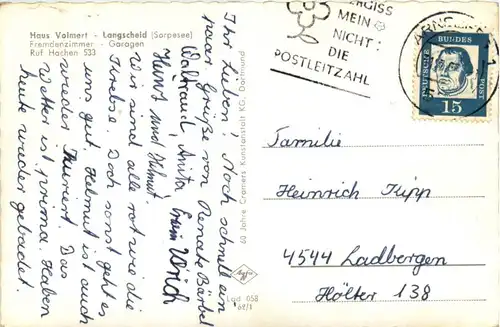 Haus Volmert - Langscheid (Sorpesee)
Fremdenzimmer - Garagen
Ruf Hachen 533
Ihr Lieben! Noch schnell ein
paar Grüße von Renate Bärbel
Waltraud, Anita,
Hans und Helmut.
Wir sind alle rot wie die
Krebse. Doch sonst geht es
uns gut. Helmut ist auch
wieder kuriert. Das
Wetter ist prima. Haben
heute wieder gebadet.
60 Jahre Cramers Kunstanstalt KG, Dortmund
Agfa
Lad 058
62/1
VERGISS
MEIN
NICHT:
DIE
POSTLEITZAHL
ARNSBERG
1
DEUTSCHE BUNDESPOST
15
Familie
Heinrich Kipp
4544 Ladbergen
Hölter 138